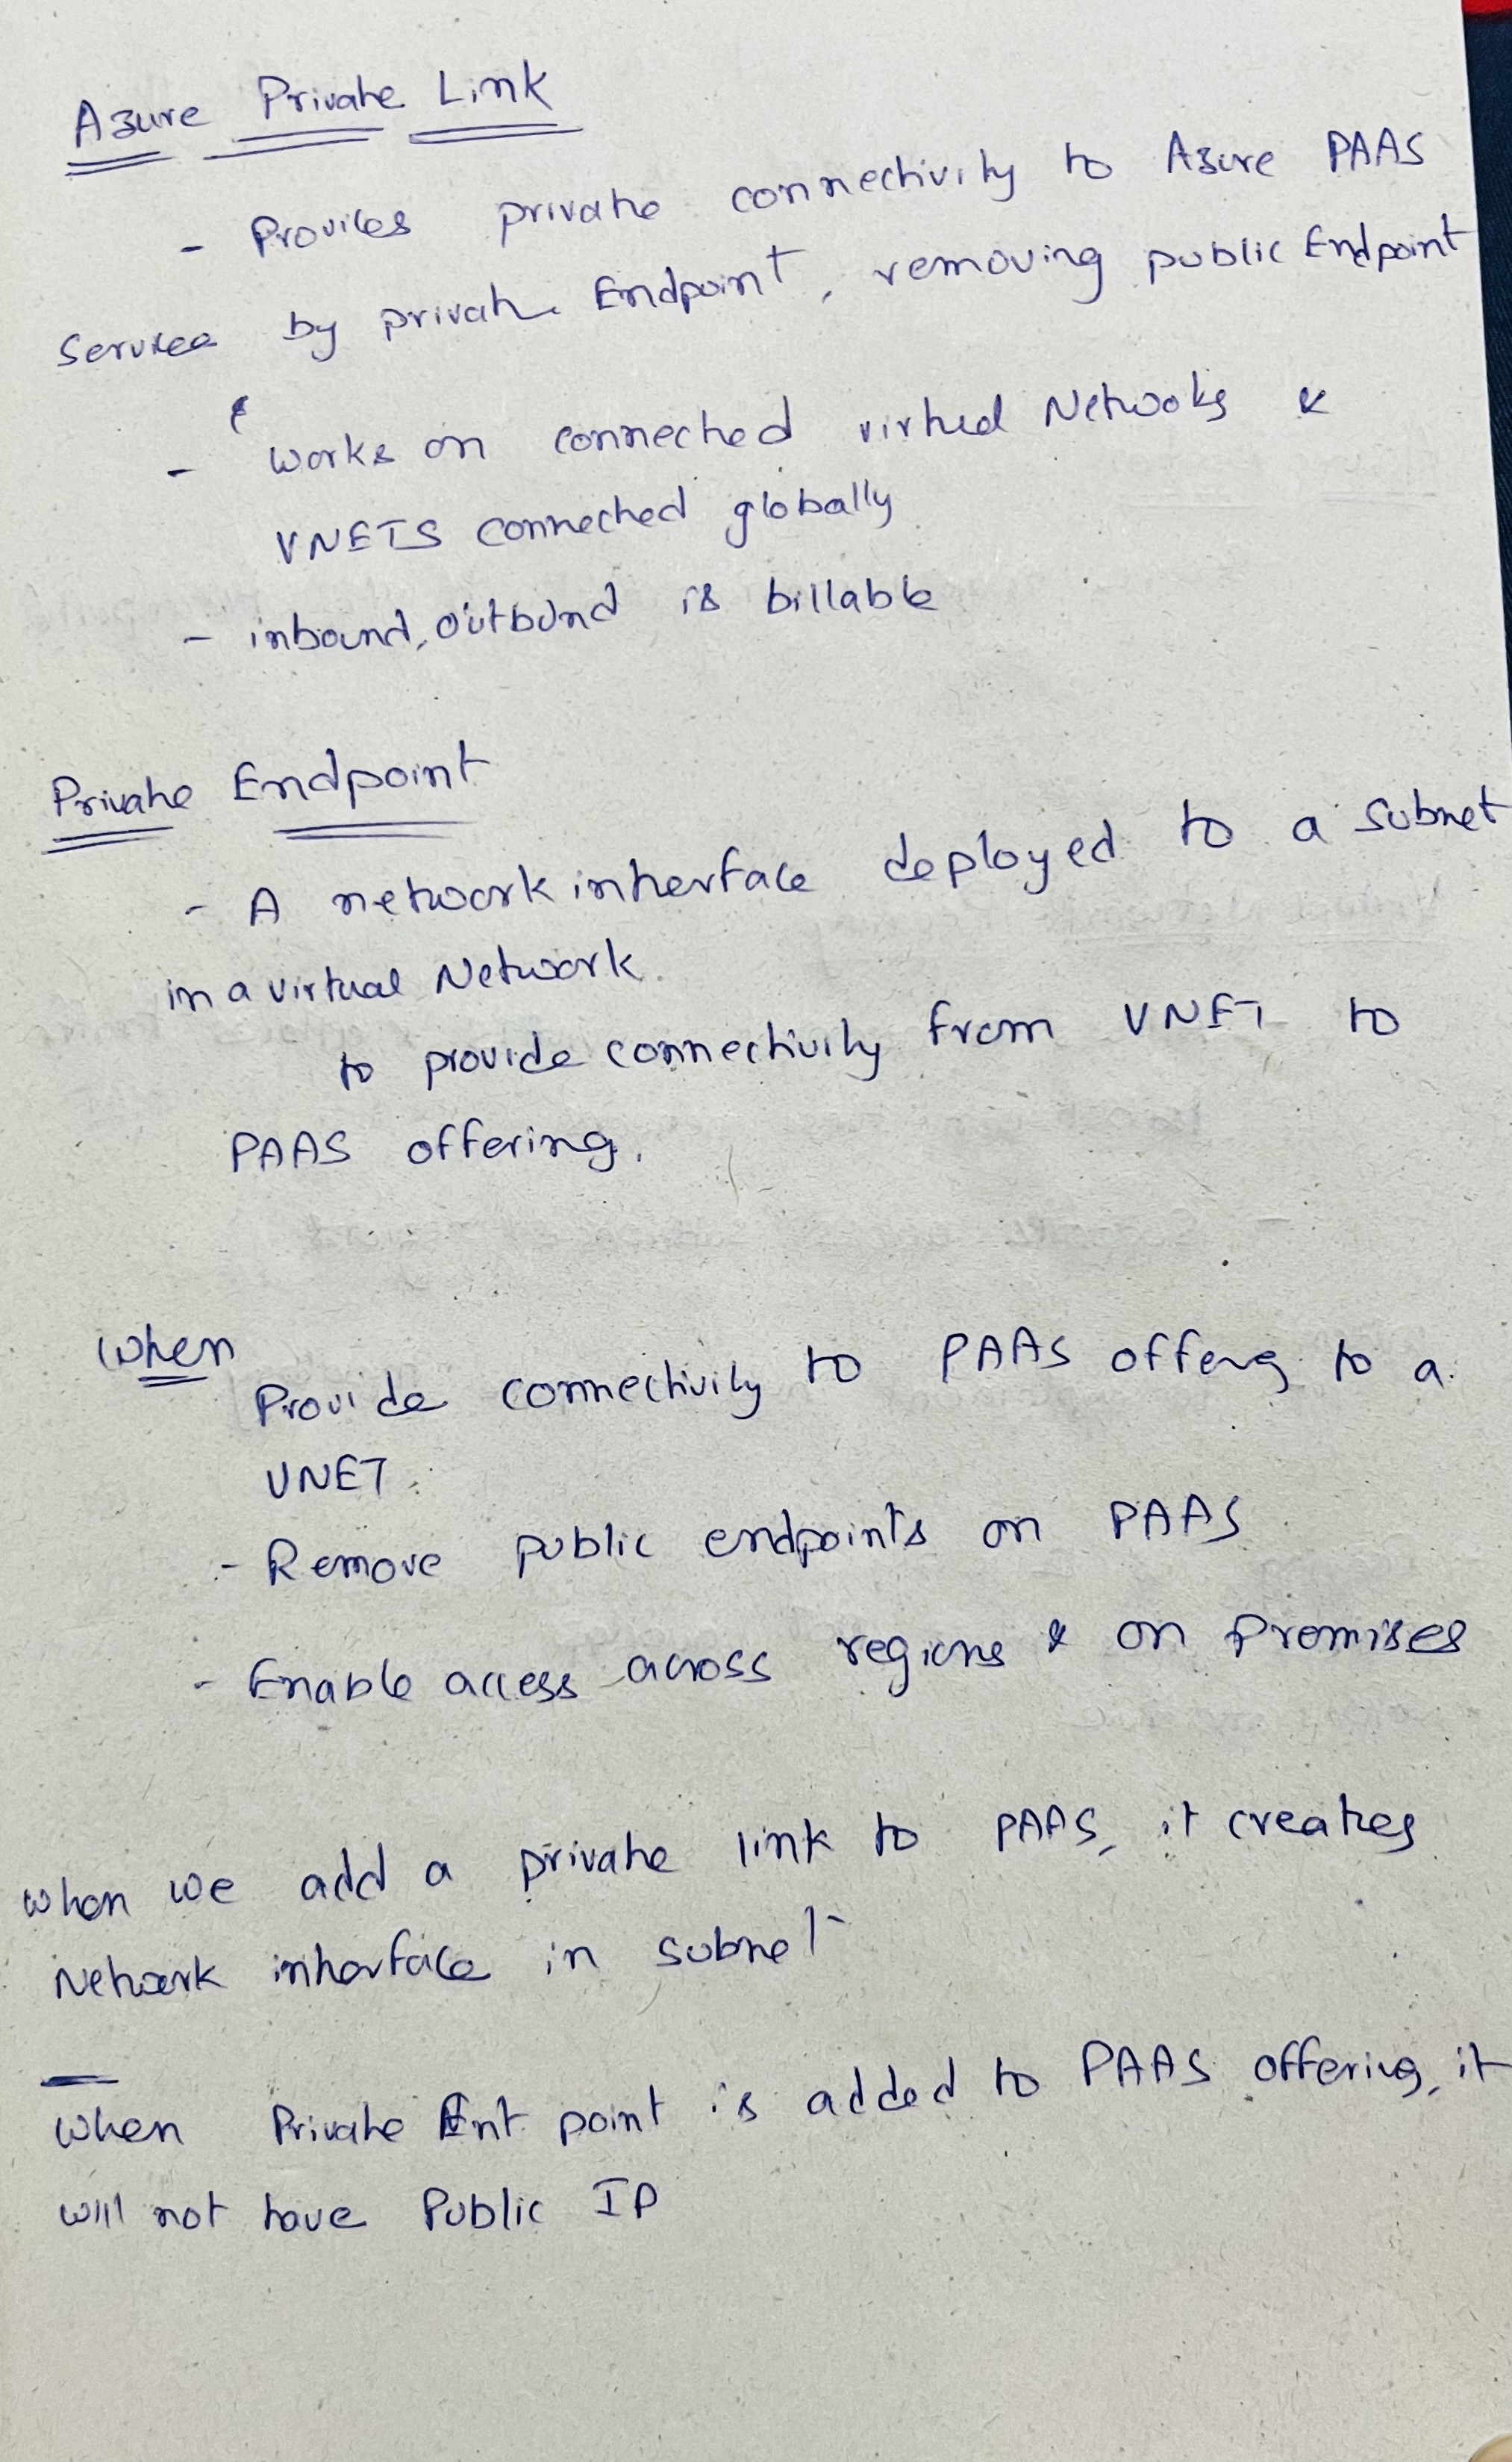 Azure Private Link
- Provices private connectivity to Azure PAAS
Service by private Endpoint, removing public Endpoint
- works on connected virtual Netwoks &
VNETS connected globally
- inbound, outbund is billable
Private Endpoint
- A network interface deployed to a subnet
in a virtual Network.
to provide connectivity from VNET to
PAAS offering.
When
Provide connectivity to PAAS offerg to a
VNET.
- Remove public endpoints on PAAS
- Enable access across regions & on Premises
When we add a private link to PAAS, it creates
Network interface in subnet
When Private Ent point is added to PAAS offering, it
will not have Public IP